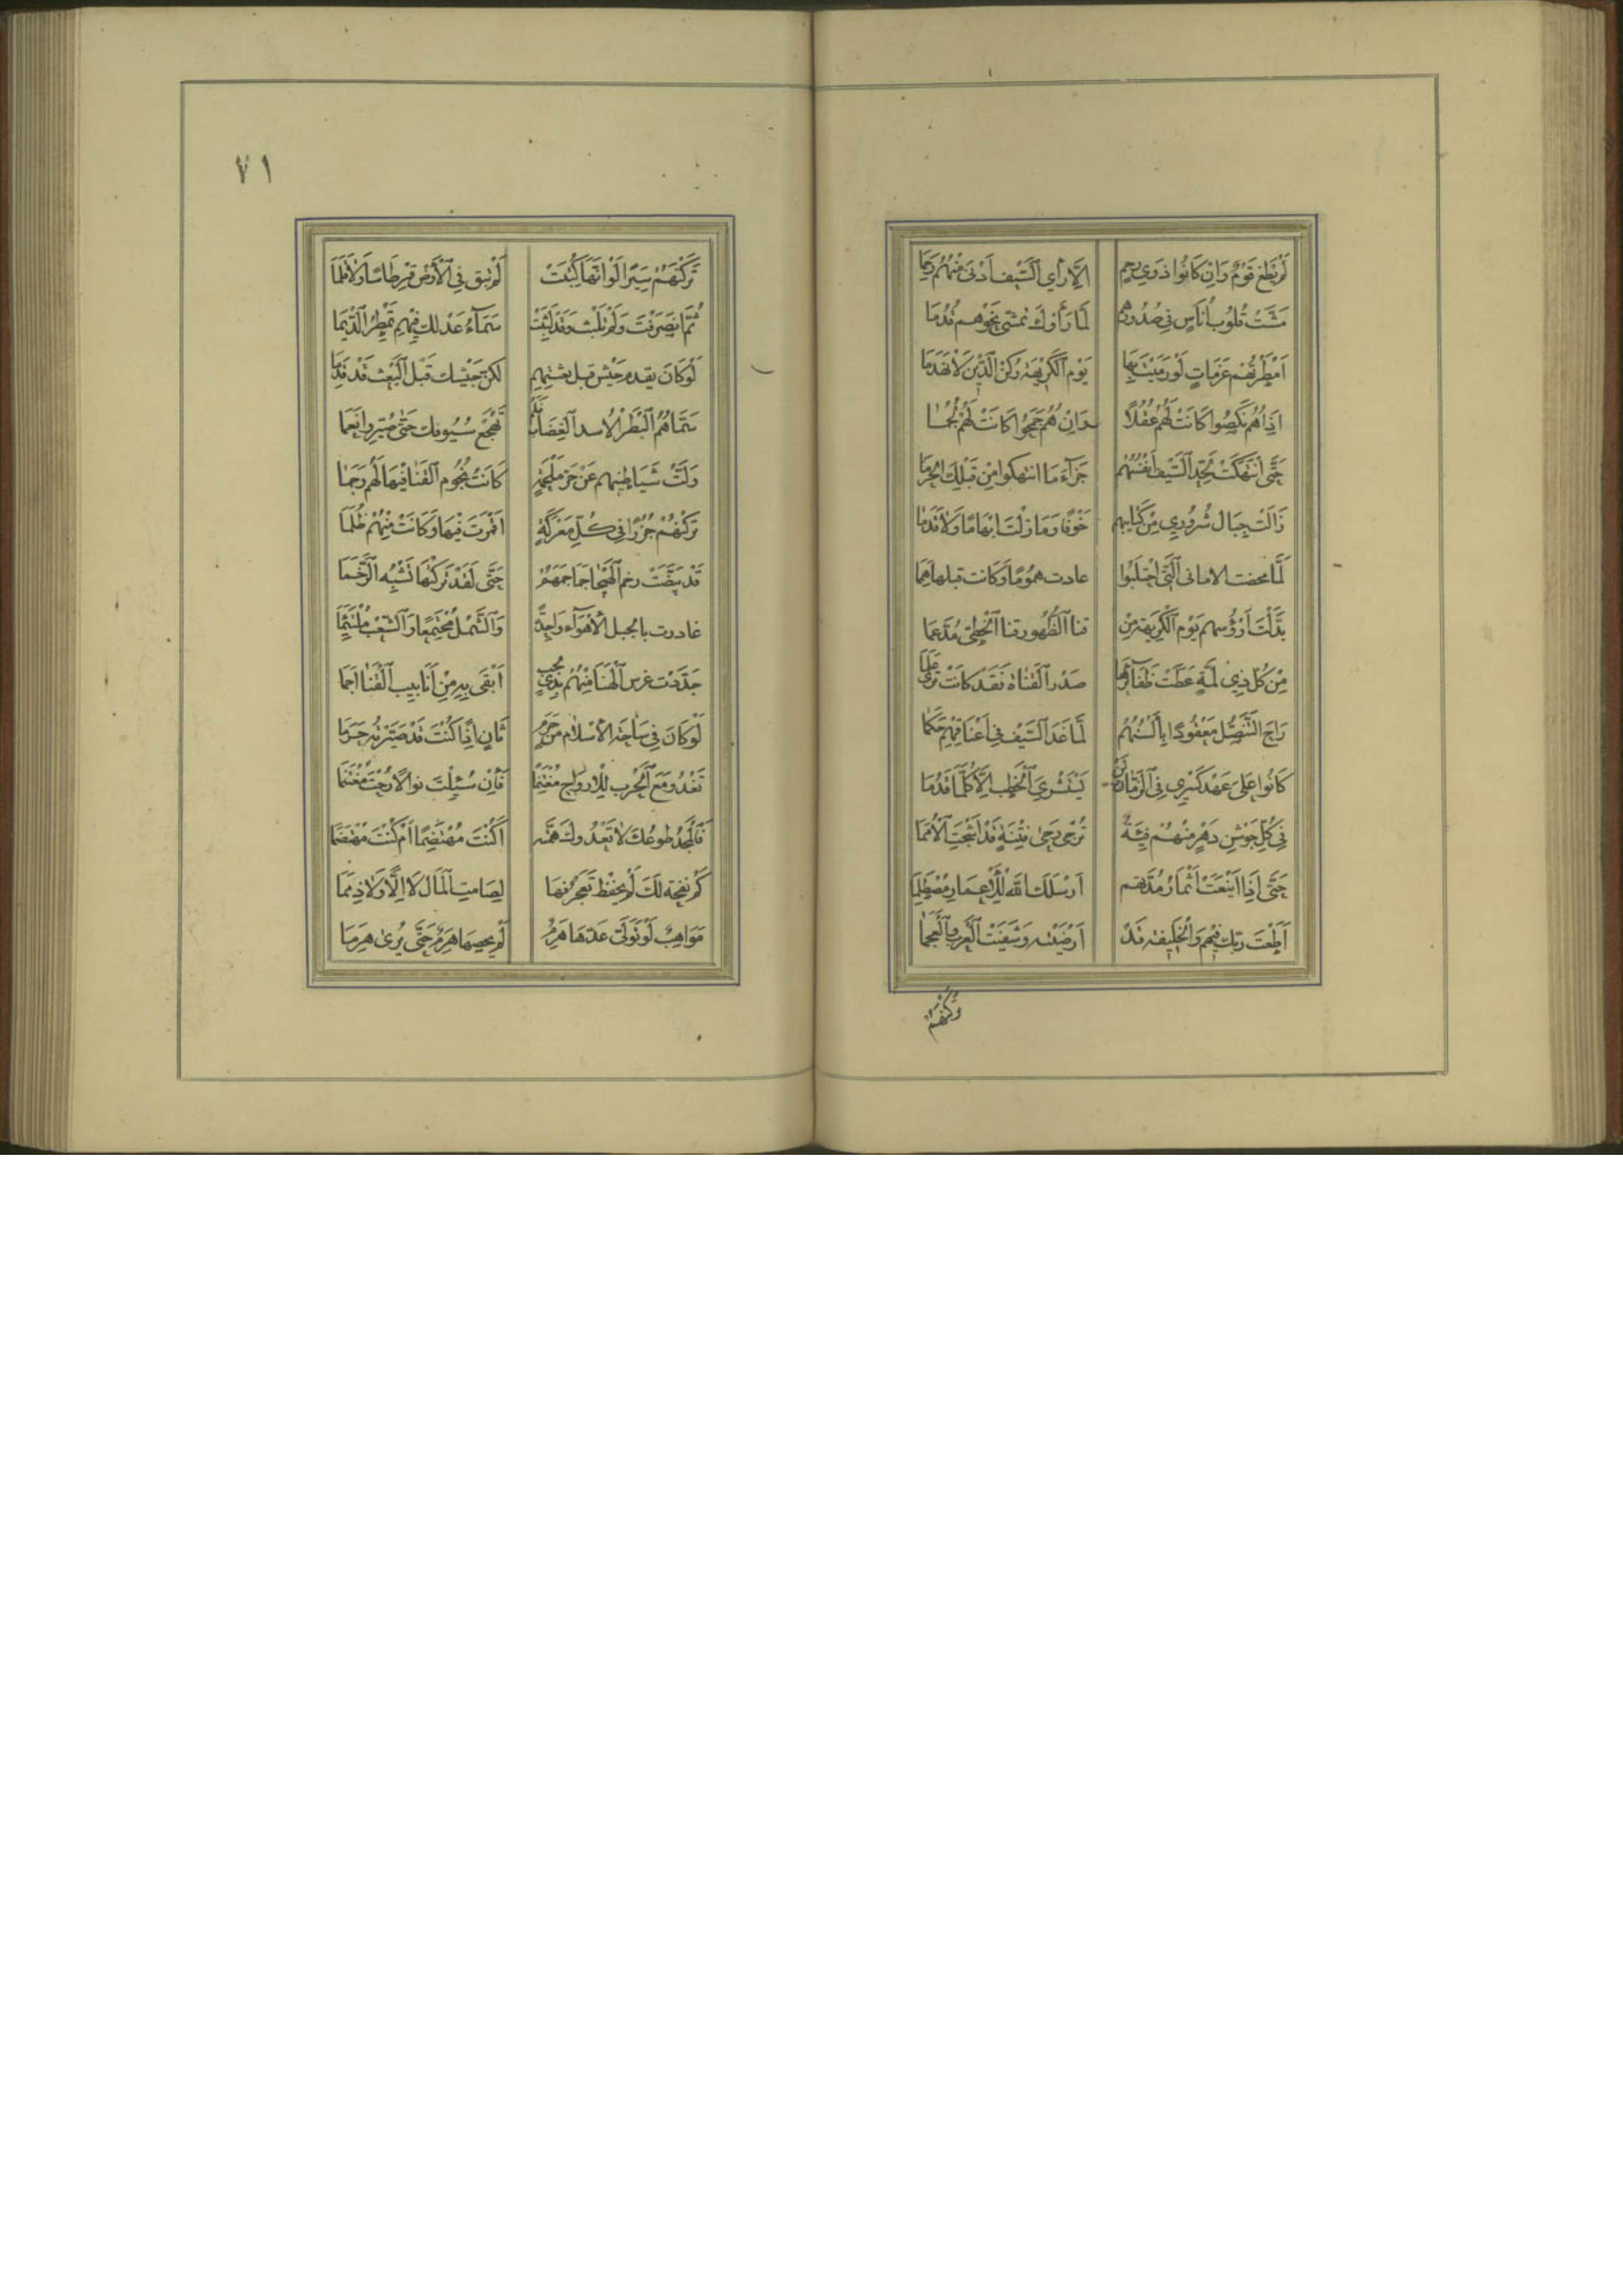 لَمْ يَطْغَ قَوْمٌ وَاِنْ كَانُوا ذَوِي رَحِمٍ اِلَّا رَأَي السَّيْفَ اَدْنَى مِنْهُمُ رَحِمَا
مَشَتْ قُلُوبُ اُنَاسٍ فِي صُدُورِهُمُ لَمَّا رَأَوْكَ تَمْشِى نَحْوَهُم قُدُمَا
اَمْطَرْتَهُمْ عَزَمَاتٍ لَوْ رَمَيْتَ بِهَا يَوْمَ الْكَرِيْهَةِ رُكْنَ الَّدِيْنِ لَانْهَدَمَا
اِذَا هُمُ نَكَصُوا كَانَتْ لَهُمْ عُقُلًا وَاِنْ هُمُ جَمَحُوا كَانَتْ لَهُمْ لُجُمَا
حَتَّى اَنْتَهَكْتَ بِحَدِّ السَّيْفِ اَنْفُسَهُمُ جَزَآءَ مَا انتهكوا مِنْ قَبْلِكَ الحُرَمَا
زَالَتْ جِبَالُ شَرُورِي مِنْ كَتَايِبِهِم خَوْفًا وَمَا زِلْتَ اِقْدَامًا وَلَا قَدَمَا
لَمَّا مخضت الامانى الَّتِي اَحْتَلَبُوا عادت هُمُومًا وَكانت قبلها هِمَمَا
بَدَّلْتَ اَرْؤُسَهم يَوْمَ الْكَرِيهَةِ مِنْ قنا الظُّهُورِ قنا الْخَطِّى مُدَّعَمَا
مِنْ كُلِّ ذِي لَمَّةٍ غَطَّتْ ضَفَآئِرُهَا صَدْرَ الْقَنَاة فَقَدْ كَانَتْ تُرَى عَلَمَا
رَاحَ التَّنَصُّلُ مَعْقُودًا بِأَلْسُنِهُمُ لَمَّا غَدَا السَّيْفُ فِي اَعْنَاقِهِمْ حَكَمَا
كَانُوا عَلَى عَهْدِ كِسْرِي فِى الزَّمَانِ وَلَنْ يَسْتَشْرِيَ الْخَطْبُ اِلَّا كُلَّمَا قَدُمَا
فِي كُلِّ جَوْشَنِ دَهْرٍ مِنْهُمُ فِئَةٌ تُزْجَى رَحَى فِتْنَةٍ قَدْ اَشْجَتِ الْاُمَمَا
حَتَّى اِذَا اَيْنَعَتْ اَثْمَارُ مُدَّتهم اَرْسَلَكَ اللّٰهُ لِلْاَعْمَارِ مُصْطَلِمَا
اَطَعْتَ رَبَّكَ فِيْهِم وَالْخَلِيْفَة قَدْ اَرْضَيْتَه وَشَفَيْتَ الْعُرْبَ وَالْعَجَمَا
تَرَكْتَهُمْ
٧١
تَرَكْتَهُمْ سِيَرًا لَوْ اَنَّهَا كُتِبَتْ لَمْ تبق فِي الْاَرْضِ قِرْطَاسًا وَلَا قَلَمَا
ثُمَّ انْصَرَفْتَ وَلَمْ تَلْبَثْ وَقَدْ لَبِثَتْ سَمَآءُ عَدْلِكَ فِيْهِم تُمْطِرُ الدِّيَمَا
لَوْ كَانَ يقدم جَيْشٌ قَبل مَبْعثِهِم لكن جَيْشك قَبْلَ الْبَعْثِ قَدْ قَدِمَا
وَلَّتْ شَيَاطِيْنُهم عَنْ حَرِّ مَلْحَمَةٍ كَانَتْ نُجُوم الْقَنَا فِيْهَا لَهُم رَجَمَا
تَرَكْتَهُمْ جَزَرًا فِي كُلِّ مَعْرَكَةٍ اَقْمَرْتَ فِيْهَا وَكَانَتْ مِنْهُمُ ظُلَمَا
قَدْ بَيَّضَتْ رخم الْهَيْجَا جَمَاجِمَهُمْ حَتَّى لَقَدْ تَرَكْتهَا تُشْبِهُ الرَّخَمَا
غادرت بالجبل الْاَهْوَآءَ وَاحِدَةً وَالشَّمْلَ مُجْتَمِعًا وَالشَّعْبَ مُلْتَئِمًا
جَدَّدْت غرس الْمُنَا مِنْهُمْ بِذِي لجب اَبْقَى بِهِ مِنْ اَنَابِيبِ الْقَنَا اَجَمَا
لَوْ كَانَ فِي سَاحَةِ الْاِسْلَام مِنْ حَرَمٍ ثَانٍ اِذًا كُنْتَ قَدْ صَيَّرْته حَرَمَا
تَغْدُو مَعَ الْحَرْبِ لِلْاَرواح مُغْتَنِمًا فَاِنْ سُئِلْتَ نَوالًا رُحْتَ مُغْتَنَمَا
فَالْمَجْدُ طوعُكَ لَا تَعْدُوكَ هِمَّته اَكُنْتَ مُهْتَضِمًا اَمْ كُنْتَ مهْتَضَمَا
كَمْ نفحة لَكَ لَمْ يحْفَظ تَحَرُّمهَا لِصَامِتِ الْمَالِ لَا اِلًّا وَلَا ذِمَمَا
مَوَاهِبٌ لَوْ تَوَلَّى عَدّهَا هَرِمٌ لَمْ يُحْصِهَا هَرِمٌ حَتَّى يُرَى هَرِمَا